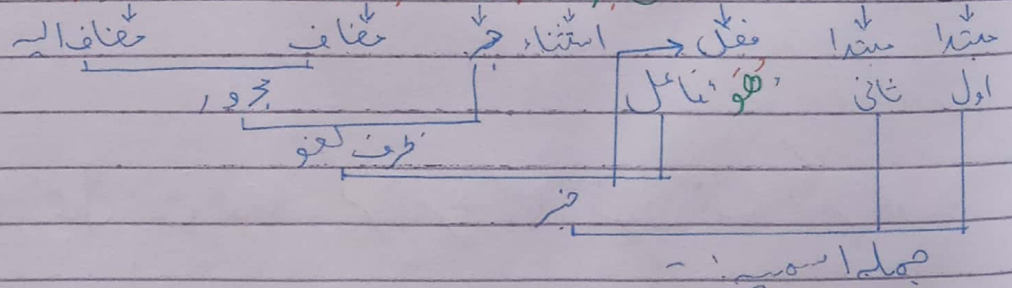 مبتدا مبتدا فعل استثناء جر مضاف مضاف الیہ
اول ثانی هُوَ فاعل مجرور
ظرف لغو
خبر
جملہ اسمیہ